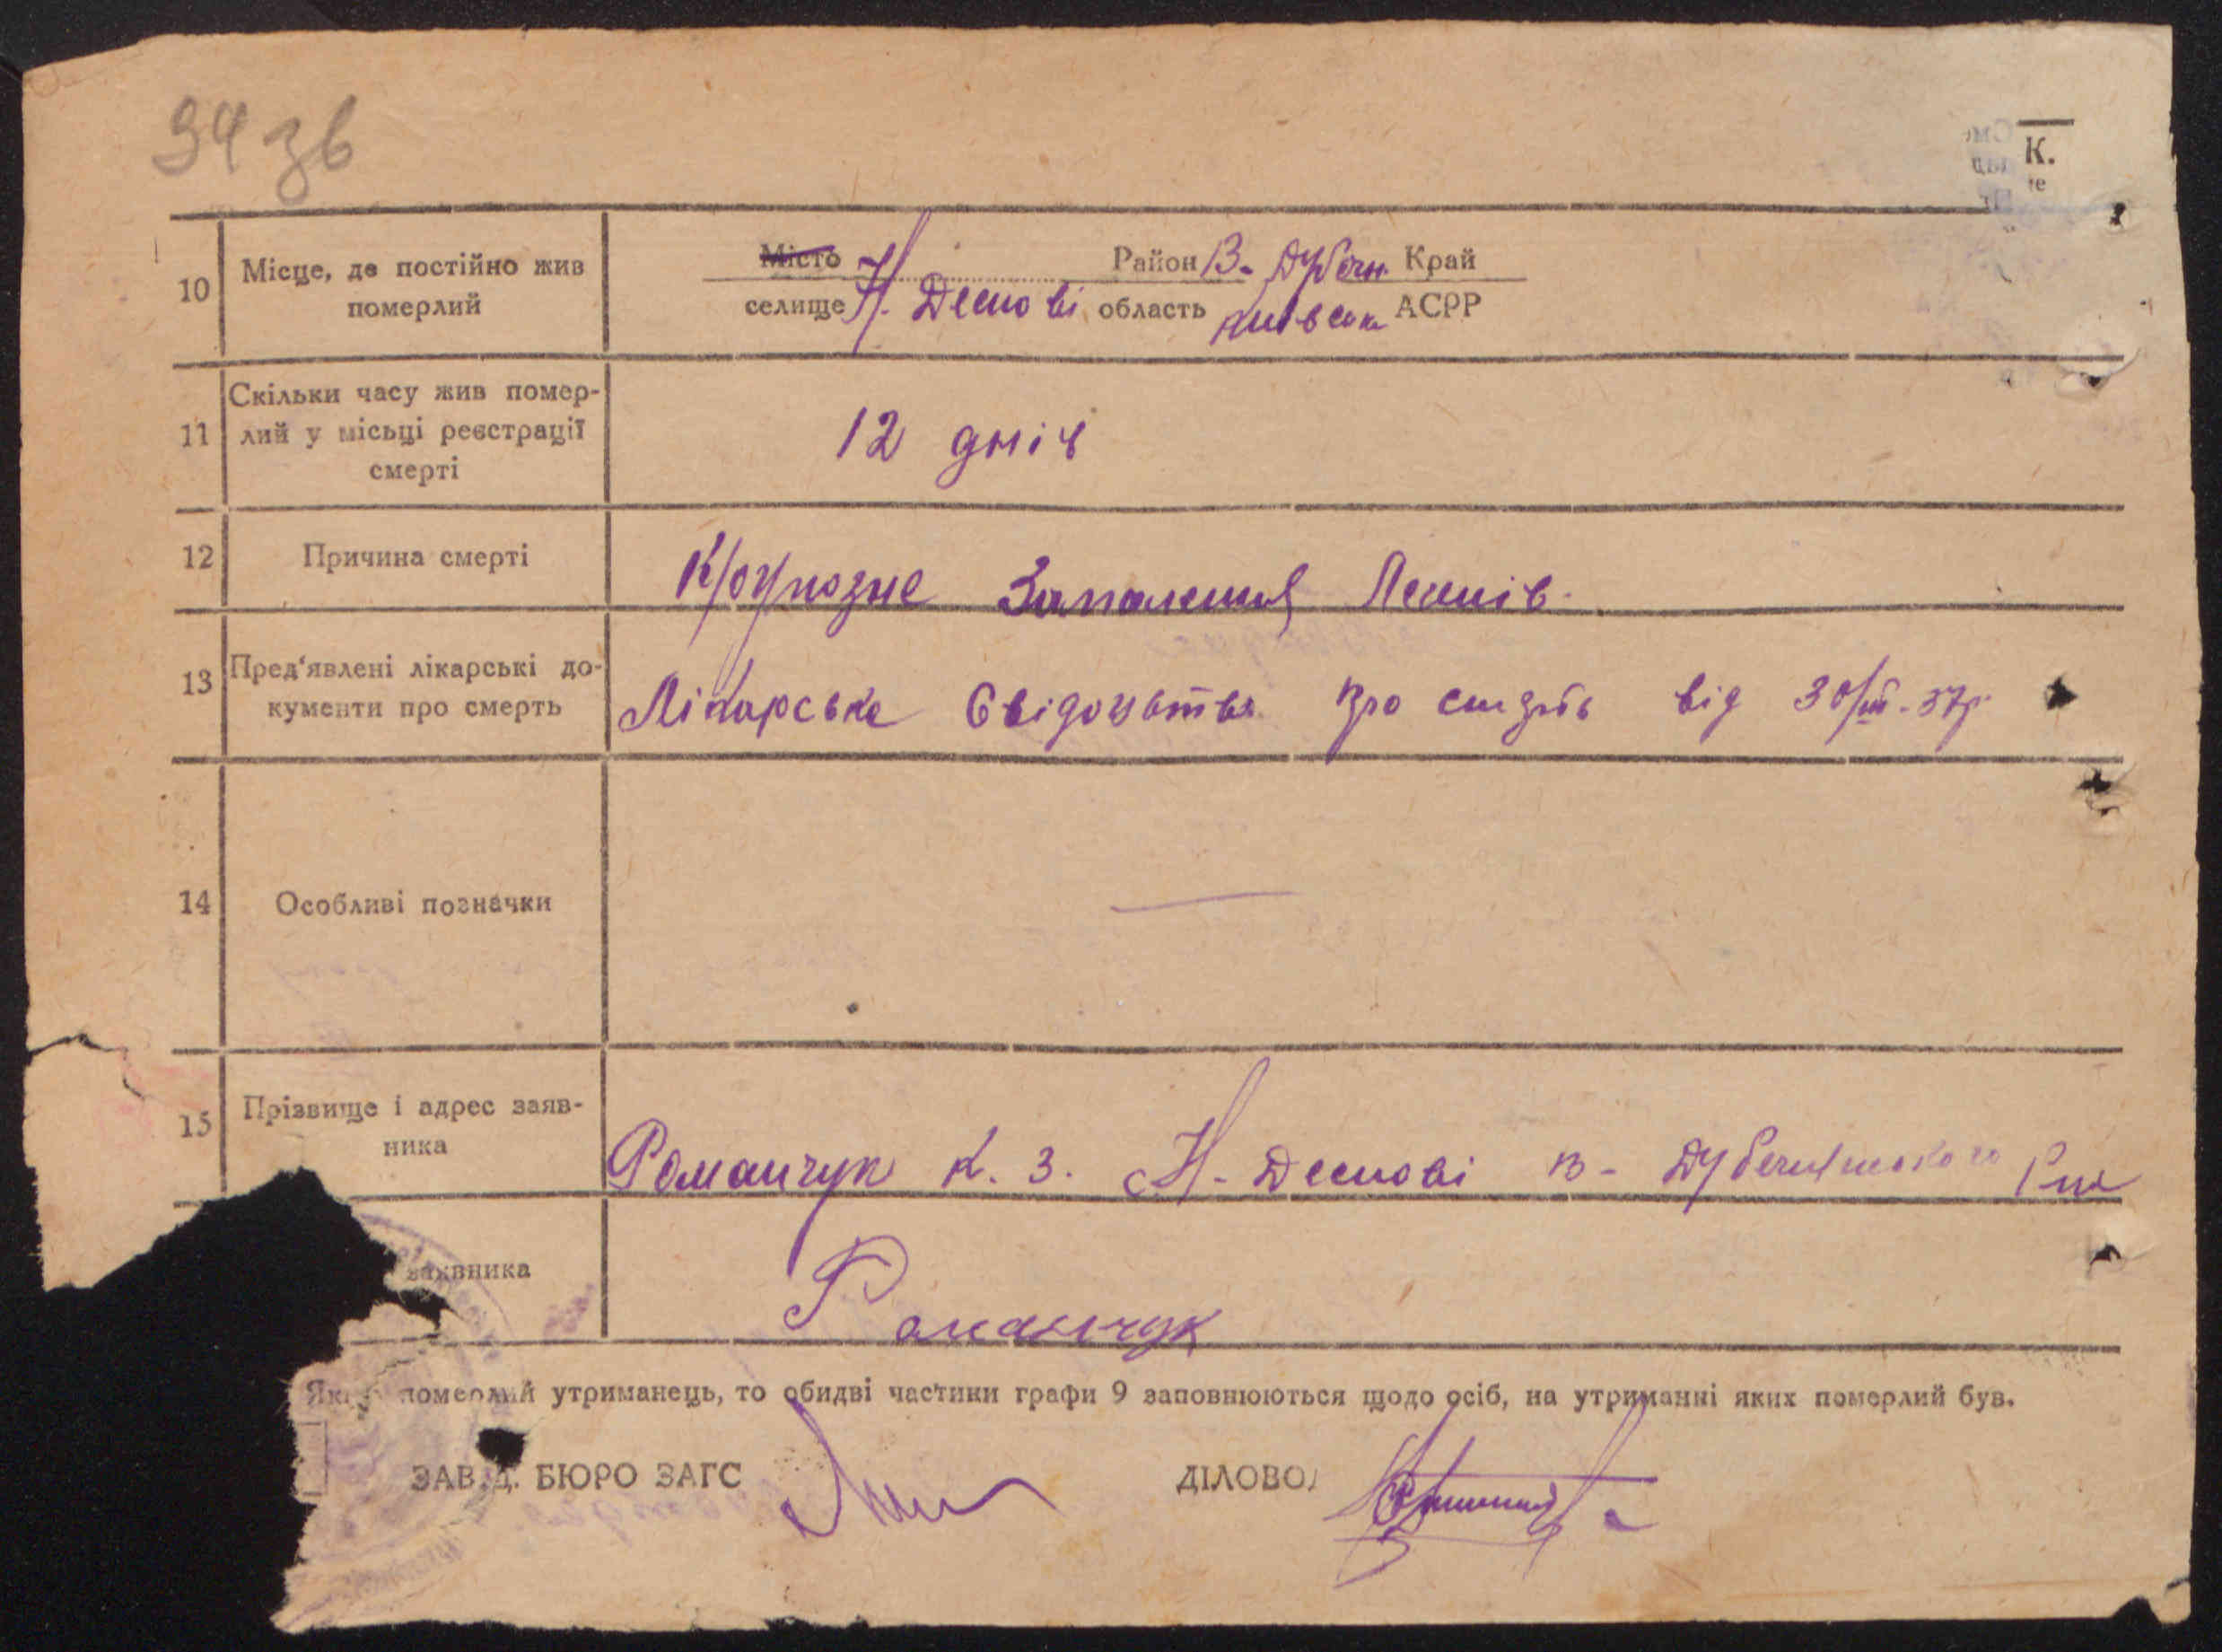 94 зв
К.
10 Місце, де постійно жив померлий
Місто Район В-Дубечн. Край
селище Н. Десно ві область Київська АСРР
11 Скільки часу жив помер-
лий у місьці реєстрації
смерті
12 днів
12 Причина смерті
Крупозне Запалення Легенів.
13 Пред'явлені лікарські до-
кументи про смерть
Лікарське Свідоцтво про смерть від 30/III-37р.
14 Особливі позначки
—
15 Прізвище і адрес заяв-
ника
Романчук К. З. Н-Деснові В-Дубечнянського
заявника
Романчук
померлий утриманець, то обидві частини графи 9 заповнюються щодо осіб, на утриманні яких померлий був.
ЗАВ.Д. БЮРО ЗАГС
ДІЛОВОД